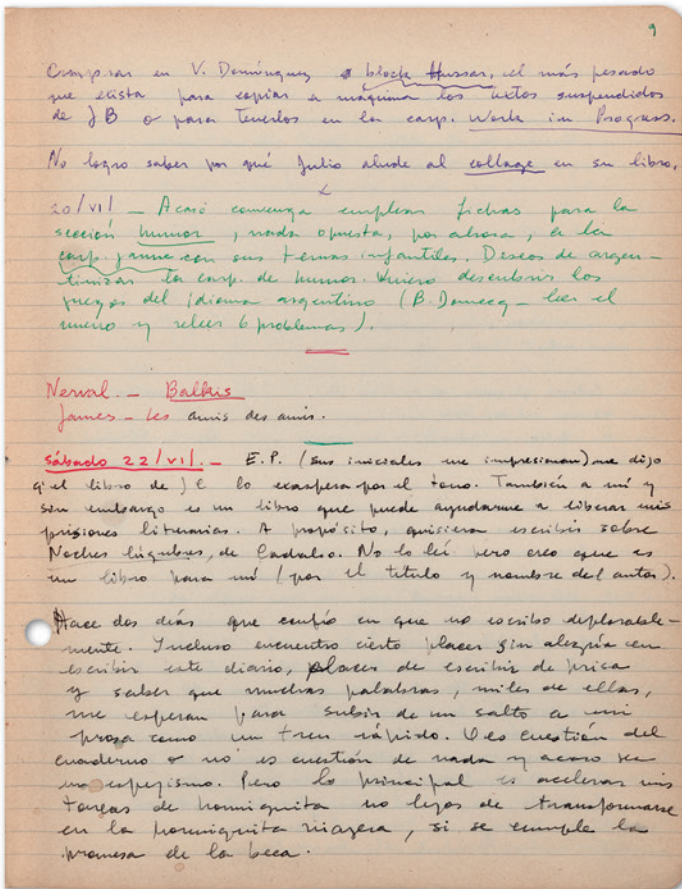 9
Comprar en V. Domínguez block Hussar, el más pesado
que exista para copiar a máquina los textos suspendidos
de JB o para tenerlos en la carp. Work in Progress.
No logro saber por qué Julio alude al collage en su libro.
20/VI — Acaso convenga emplear fichas para la
sección humor, nada opuesta, por ahora, a la
carp. con sus temas infantiles. Deseos de argen-
tinizar la carp. de humor. Quiero descubrir los
juegos del idioma argentino (B. Domecq — leer el
nuevo y releer 6 problemas).
Nerval. — Balkis
James — Les amis des amis.
Sábado 22/VI. — E.P. (sus iniciales me impresionan) me dijo
q' el libro de JC lo exaspera por el tono. También a mí y
sin embargo es un libro que puede ayudarme a liberar mis
prisiones literarias. A propósito, quisiera escribir sobre
Noches lúgubres, de Cadalso. No lo leí pero creo que es
un libro para mí (por el título y nombre del autor).
Hace dos días que confío en que no escribo deplorable-
mente. Incluso encuentro cierto placer sin alegría en
escribir este diario, placer de escribir de prisa
y saber que muchas palabras, miles de ellas,
me esperan para subir de un salto a mi
prosa como un tren rápido. O es cuestión del
cuaderno o no es cuestión de nada y acaso sea
un espejismo. Pero lo principal es acelerar mis
tareas de hormiguita no lejos de transformarse
en la hormiguita viajera, si se cumple la
promesa de la beca.